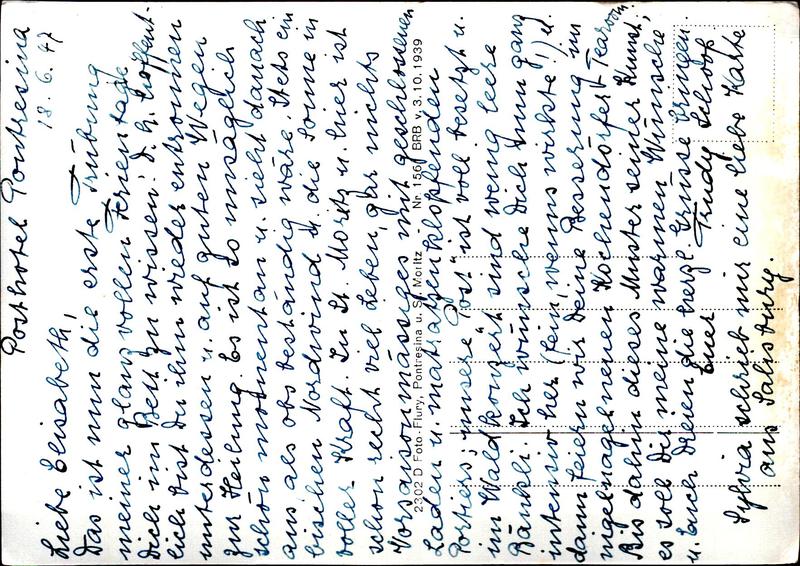 Posthotel Pontresina
18. 6. 47
Liebe Elisabeth,
Das ist nun die erste Trübung
meiner glanzvollen Ferientage
Dich im Bett zu wissen! D. h. hoffent-
lich bist Du ihm wieder entronnen
unterdessen u. auf guten Wegen
zur Heilung. Es ist so unsäglich
schön momentan u. sieht danach
aus als obs beständig wäre. Stets ein
bischen Nordwind u. die Sonne in
voller Kraft. In St. Moritz u. hier ist
schon recht viel Leben, gar nichts
Vorsaisonmässiges mit geschlossenen
Läden u. matratzenklopfenden
Portiers; unsere "Post" ist voll besetzt u.
im Waldkonzert sind wenig leere
Bänkli. Ich wünsche Dich immer ganz
intensiv her (fein, wenns wirkte!) u.
dann feiern wir Deine Besserung im
nigelnagelneuen Kochendörfer Tearoom.
Bis dahin dieses Muster seiner Kunst,
es soll Dir meine warmen Wünsche
u. Euch Dreien die herzl. Grüsse bringen.
Euer Trudy Schoop
Sylvia schrieb mir eine liebe Karte
aus Salisbury.
2302 D Foto-Flury, Pontresina u. St. Moritz - Nr. 1566 BRB v. 3. 10. 1939